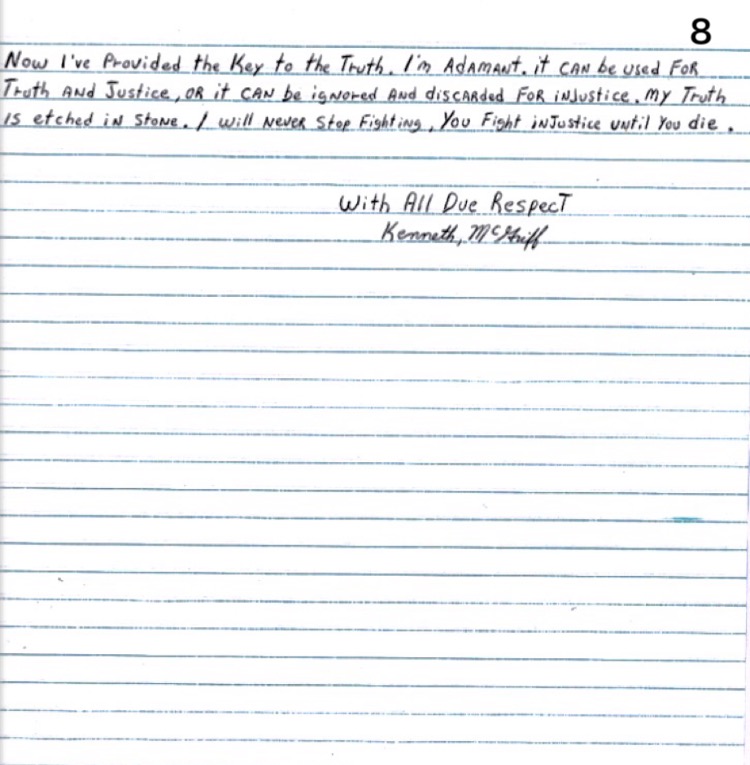 8
Now I've Provided the Key to the Truth. I'm Adamant. it can be used for
Truth and Justice, or it can be ignored and discarded for injustice. My Truth
is etched in stone. I will never stop Fighting, You Fight injustice until You die.
With All Due Respect
Kenneth, McGriff